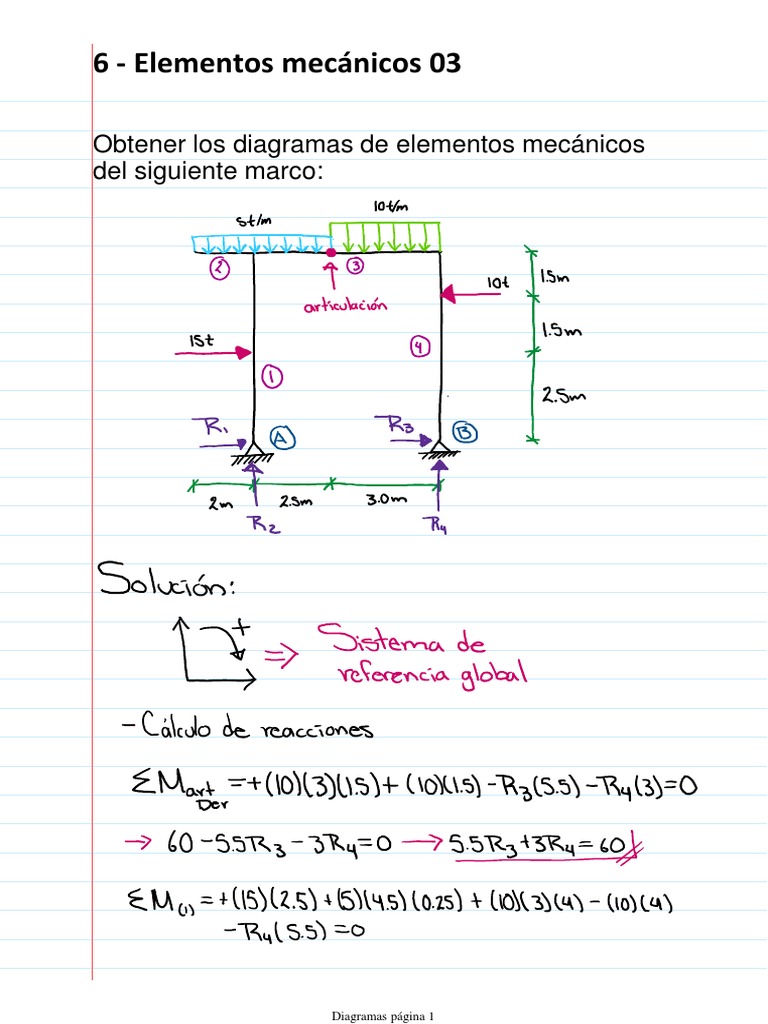 6 - Elementos mecánicos 03
Obtener los diagramas de elementos mecánicos
del siguiente marco:
10t/m
5t/m
2
3
articulación
10t
1.5m
15t
4
1.5m
1
2.5m
R1
A
R3
B
2m
2.5m
3.0m
R2
R4
Solución:
+
⇒ Sistema de
referencia global
- Cálculo de reacciones
ΣMart Der =+(10)(3)(1.5)+(10)(1.5)-R3(5.5)-R4(3)=0
→ 60-5.5R3-3R4=0 → 5.5R3+3R4=60
ΣM(1)=+(15)(2.5)+(5)(4.5)(0.25)+(10)(3)(4)-(10)(4)
-R4(5.5)=0
Diagramas página 1